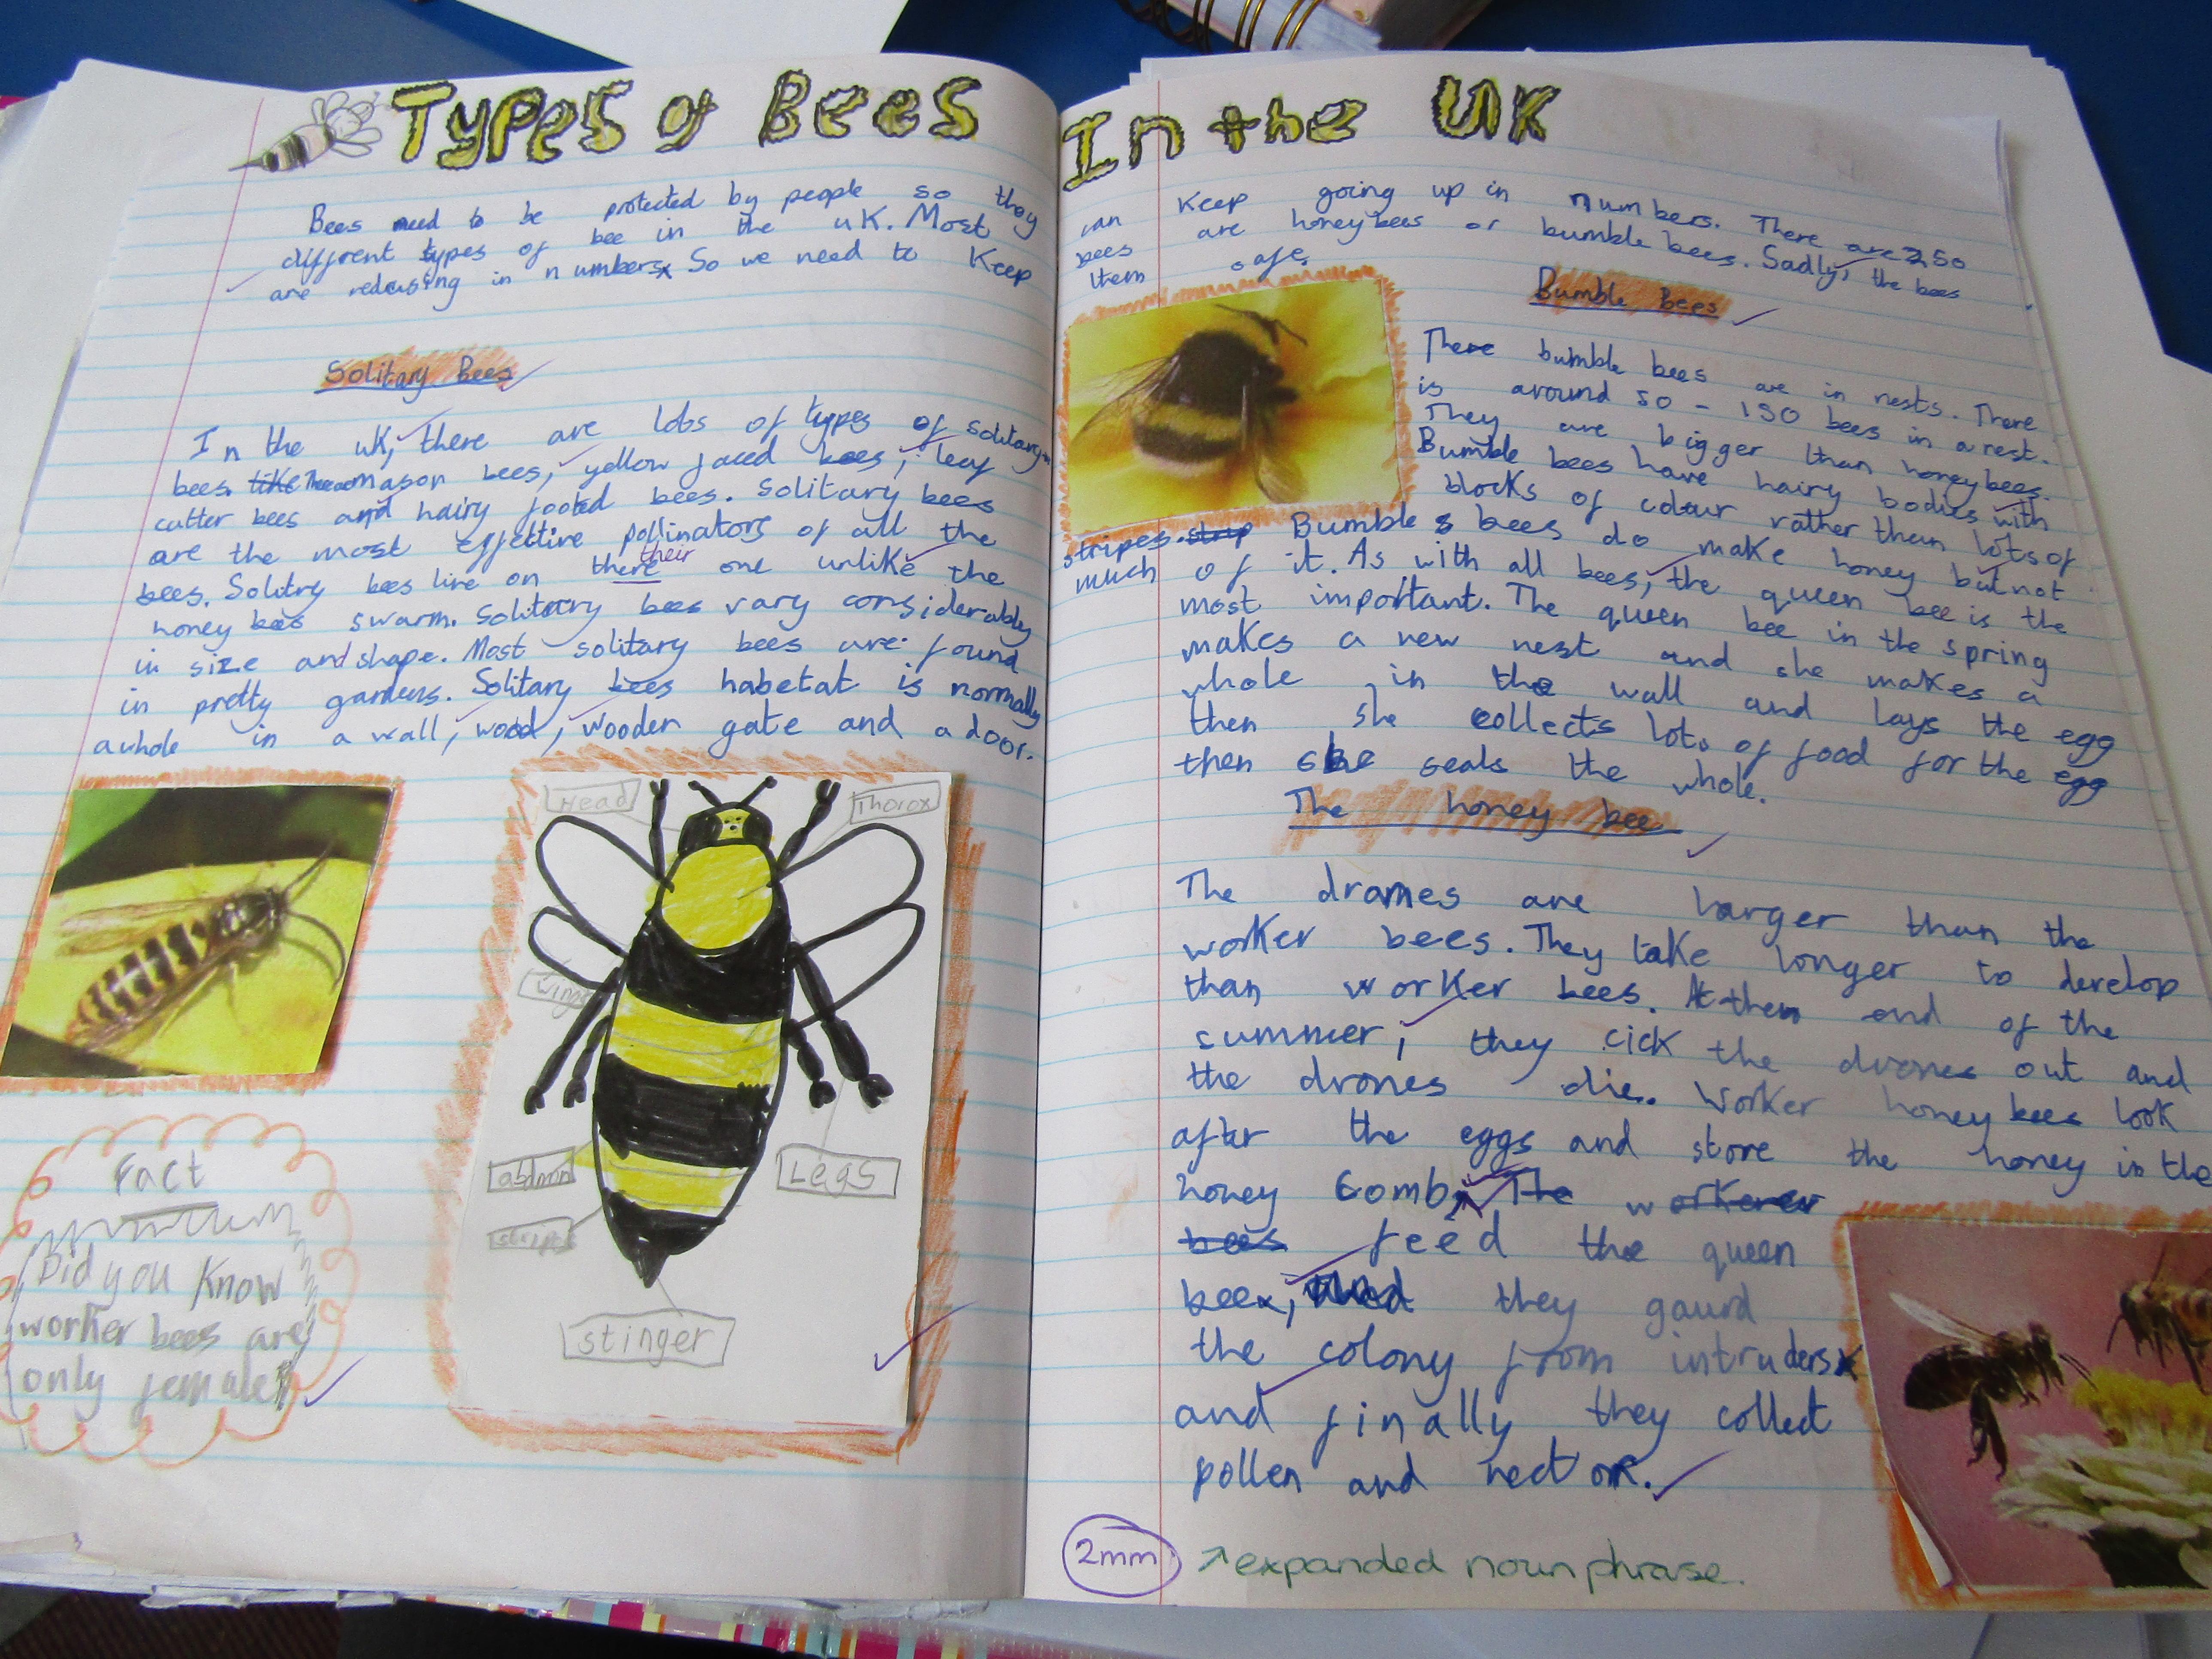 Types of Bees In the UK
Bees need to be protected by people so they can keep going up in numbers. There are 250
diffrent types of bee in the uK. Most bees are honeybees or bumble bees. Sadly, the bees
are redusing in numbers So we need to keep them safe.
Solitary Bees
In the uk, there are lots of types of solitary
bees. like mason bees, yellow faced bees, leaf
cutter bees and hairy footed bees. Solitary bees
are the most effective pollinators of all the
bees. Solitry bees live on there their one unlike the
honey bees swarm. Solitary bees vary considerably
in size and shape. Most solitary bees are found
in pretty gardens. Solitary bees habetat is normally
a whole in a wall, wood, wooden gate and a door.
Head
Thorox
Wings
abdmn
Legs
stinger
Fact
Did you know
worker bees are
only female
Bumble Bees
There bumble bees are in nests. There
is around 50 - 150 bees in a nest.
They are bigger than honeybees.
Bumble bees have hairy bodies with
blocks of colour rather than lots of
stripes. strip Bumble bees do make honey but not
much of it. As with all bees, the queen bee is the
most important. The queen bee in the spring
makes a new nest and she makes a
whole in the wall and lays the egg
then she collects lots of food for the egg
then she seals the whole.
The honey bee
The drones are larger than the
worker bees. They take longer to develop
than worker bees. At then end of the
summer, they cick the drones out and
the drones die. Worker honey bees look
after the eggs and store the honey in the
honey comb, The worker
bees feed the queen
bee, they gaurd
the colony from intruders
and finally they collect
pollen and nector.
2mm
↗ expanded noun phrase.